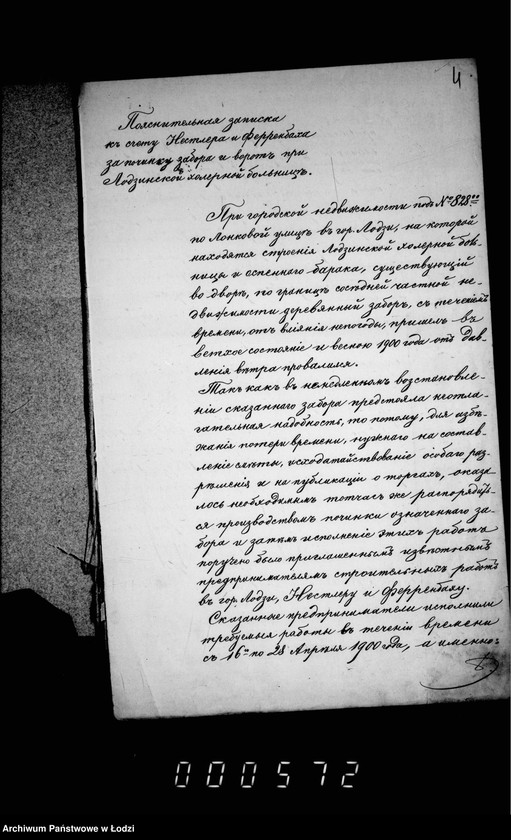 4
Пояснительная записка
къ счету Нестлера и Ферренбаха
за починку забора и воротъ при
Лодзинской холерной больницѣ.
При городской недвижимости подъ № 828
по Лонковой улицѣ въ гор. Лодзи, на которой
находятся строенія Лодзинской холерной боль-
ницы и оспеннаго барака, существующій
во дворѣ, по границѣ сосѣдней частной не-
движимости деревянный заборъ, съ теченіемъ
времени, отъ вліянія непогоды, пришелъ въ
ветхое состояніе и весною 1900 года отъ дав-
ленія вѣтра провалился.
Такъ какъ въ немедленномъ возстановле-
ніи сказаннаго забора предстояла неотла-
гательная надобность, то потому, для избѣ-
жанія потери времени, нужнаго на состав-
леніе смѣты, исходатайствованіе особаго раз-
рѣшенія и на публикаціи о торгахъ, оказа-
лось необходимымъ тотчасъ же распорядить-
ся производствомъ починки означеннаго за-
бора и затѣмъ исполненіе этихъ работъ
поручено было приглашеннымъ извѣстнымъ
предпринимателямъ строительныхъ работъ
въ гор. Лодзи, Нестлеру и Ферренбаху.
Сказанные предприниматели исполнили
требуемыя работы въ теченіи времени
съ 16го по 28 Апрѣля 1900 года, а именно:
000572
Archiwum Państwowe w Łodzi